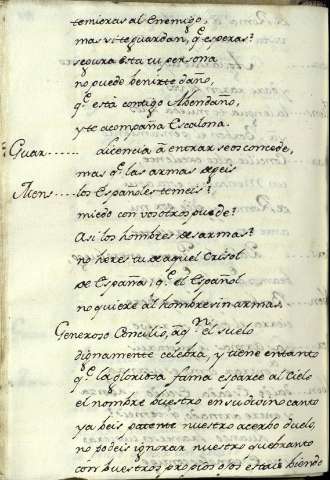 temieras al Enemigo,
mas si te guardan, q.e esperas?
segura está tu persona
no puede benirte daño,
q.e está contigo Abendaño,
y te acompaña Escalona.
Guar..... alicencia à entrar se os concede,
mas q.e las armas dejeis
Mens..... los Españoles temeis?
miedo con vosotros puede?
Asi los hombres desarmas?
no heres tu de aquel Crisol
de España, q.e el Español
no quiere al hombre sin armas.
Generoso Concilio, à q.n el suelo
dignamente celebra, y tiene en tanto
q.e la gloriosa fama esparce al Cielo
el nombre buestro en su divino canto
ya beis patente nuestro acerbo duelo,
no podeis ignorar nuestro quebranto
con buestros propios ojos estais biendo